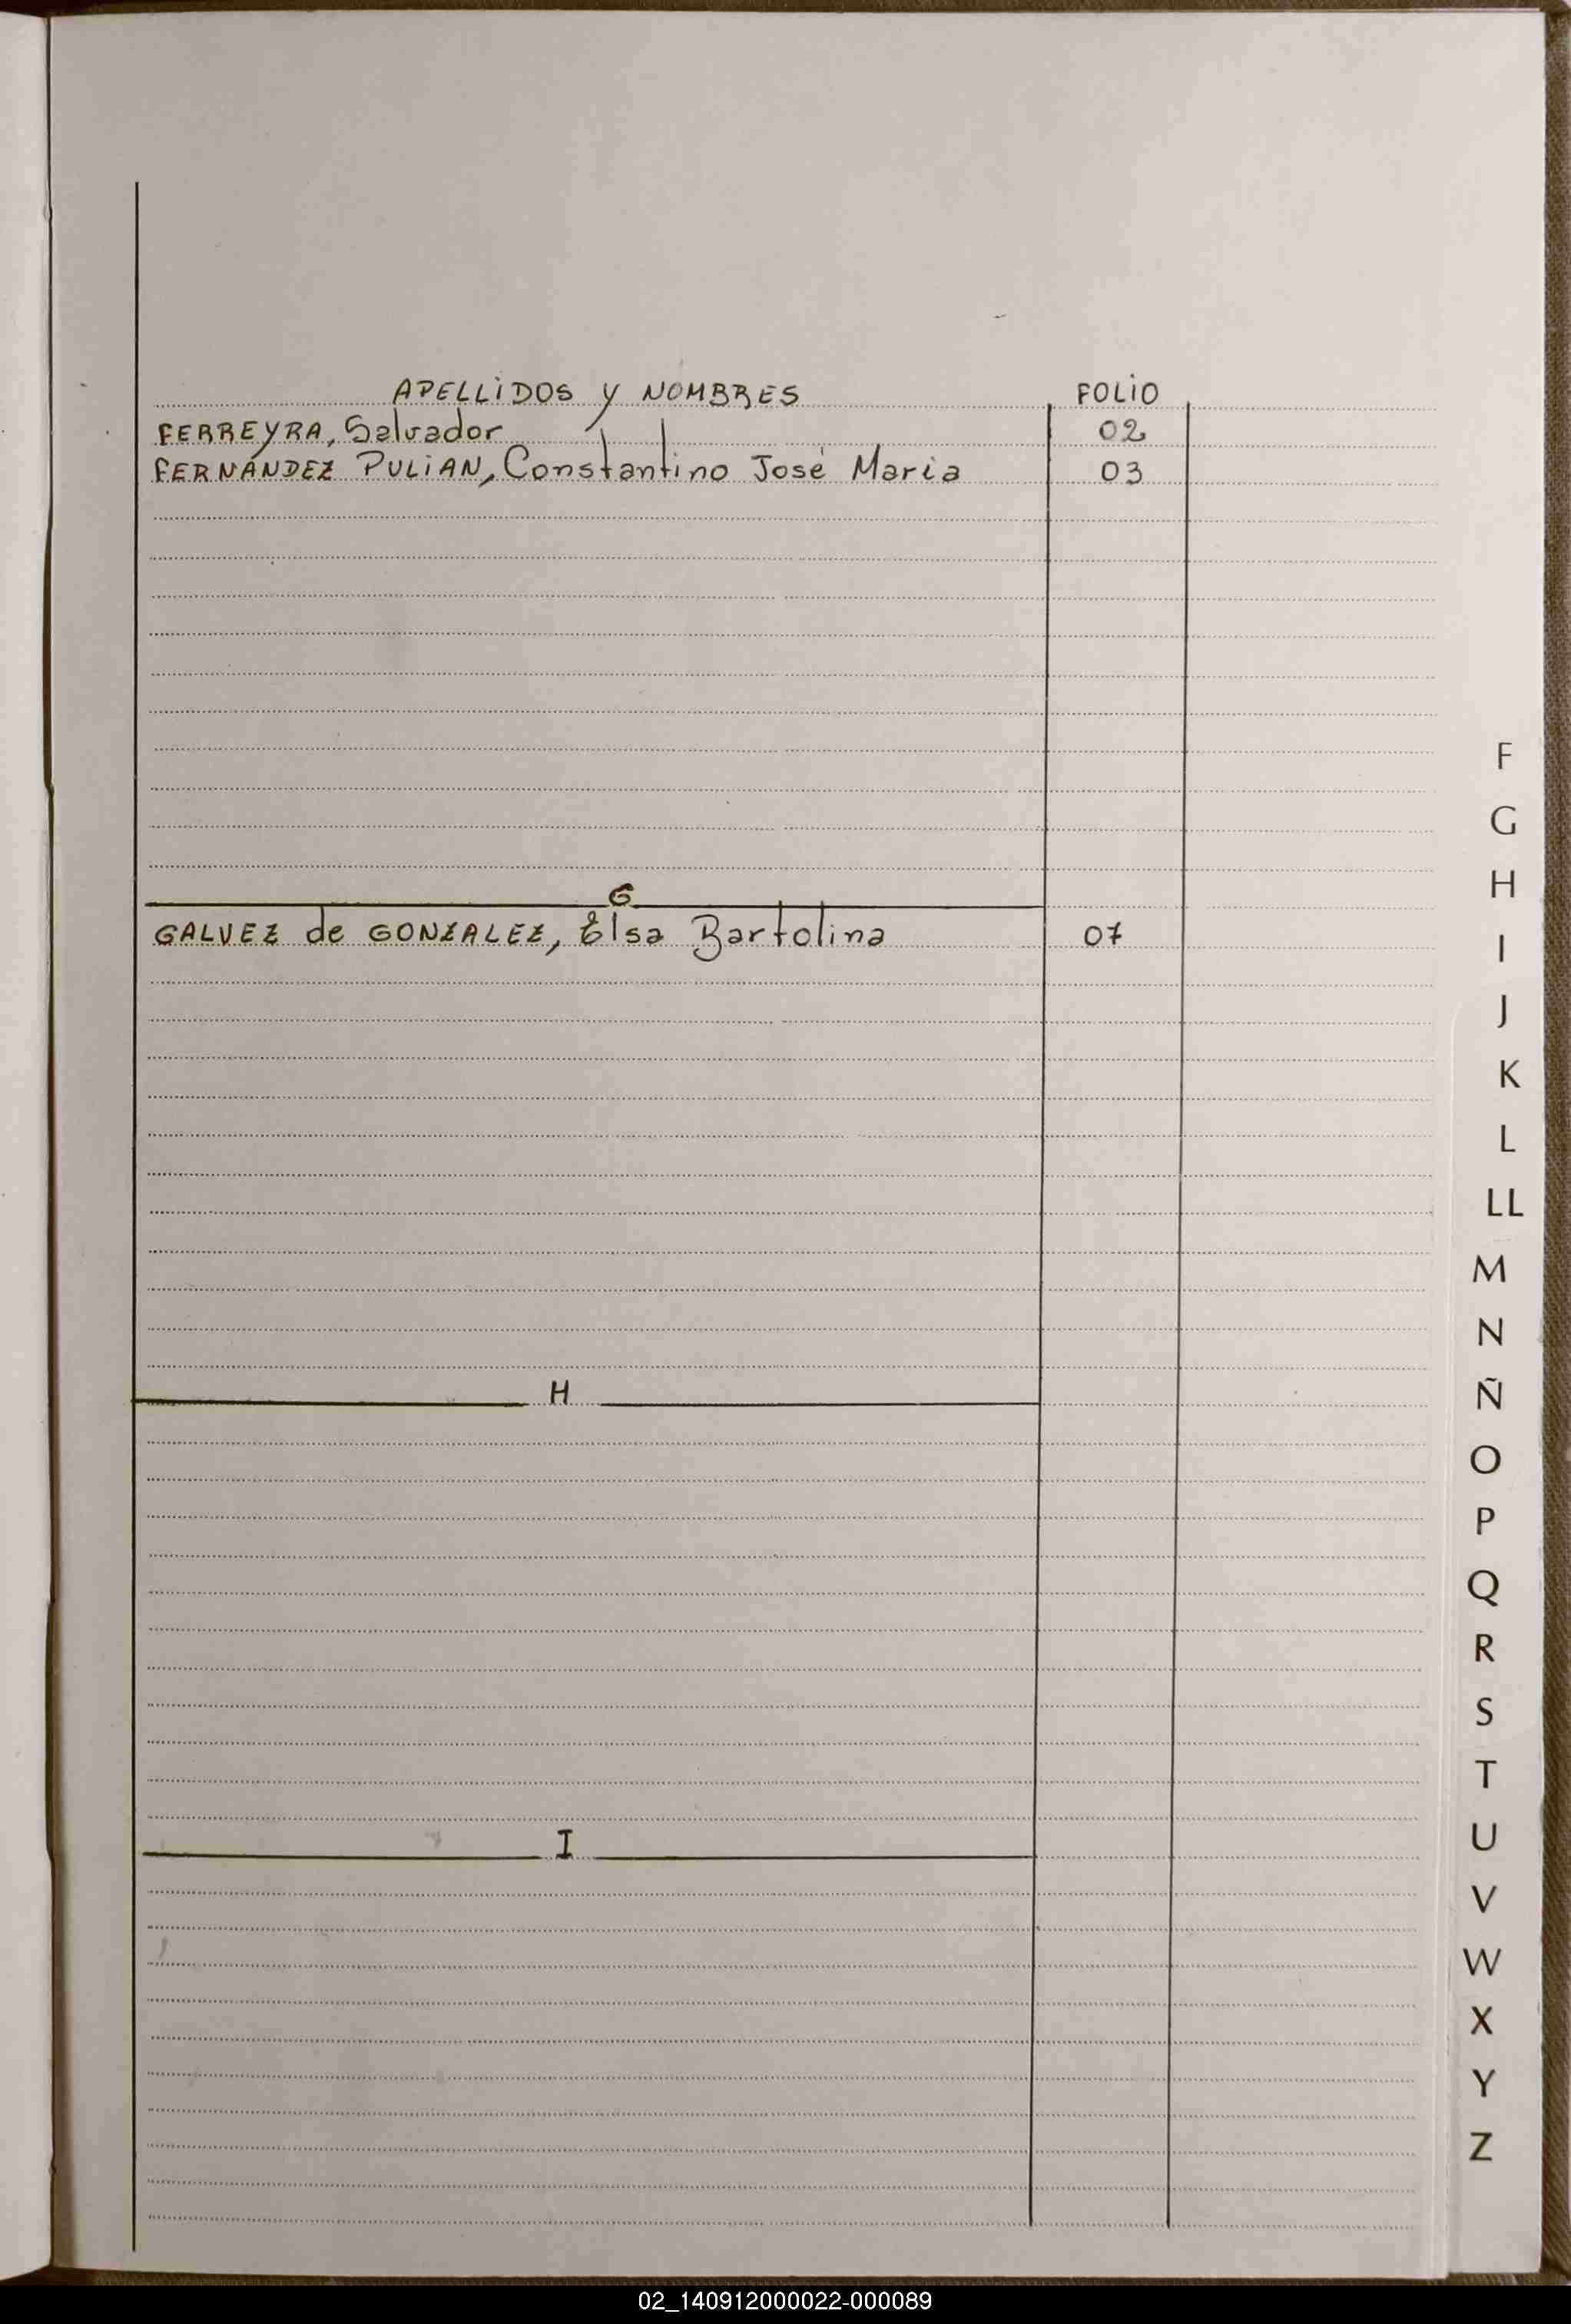 APELLIDOS y NOMBRES FOLIO
FERREYRA, Salvador 02
FERNÁNDEZ PULIAN, Constantino José Maria 03
G
GALVEZ de GONZALEZ, Elsa Bartolina 07
H
I
F
G
H
I
J
K
L
LL
M
N
Ñ
O
P
Q
R
S
T
U
V
W
X
Y
Z
02_140912000022-000089